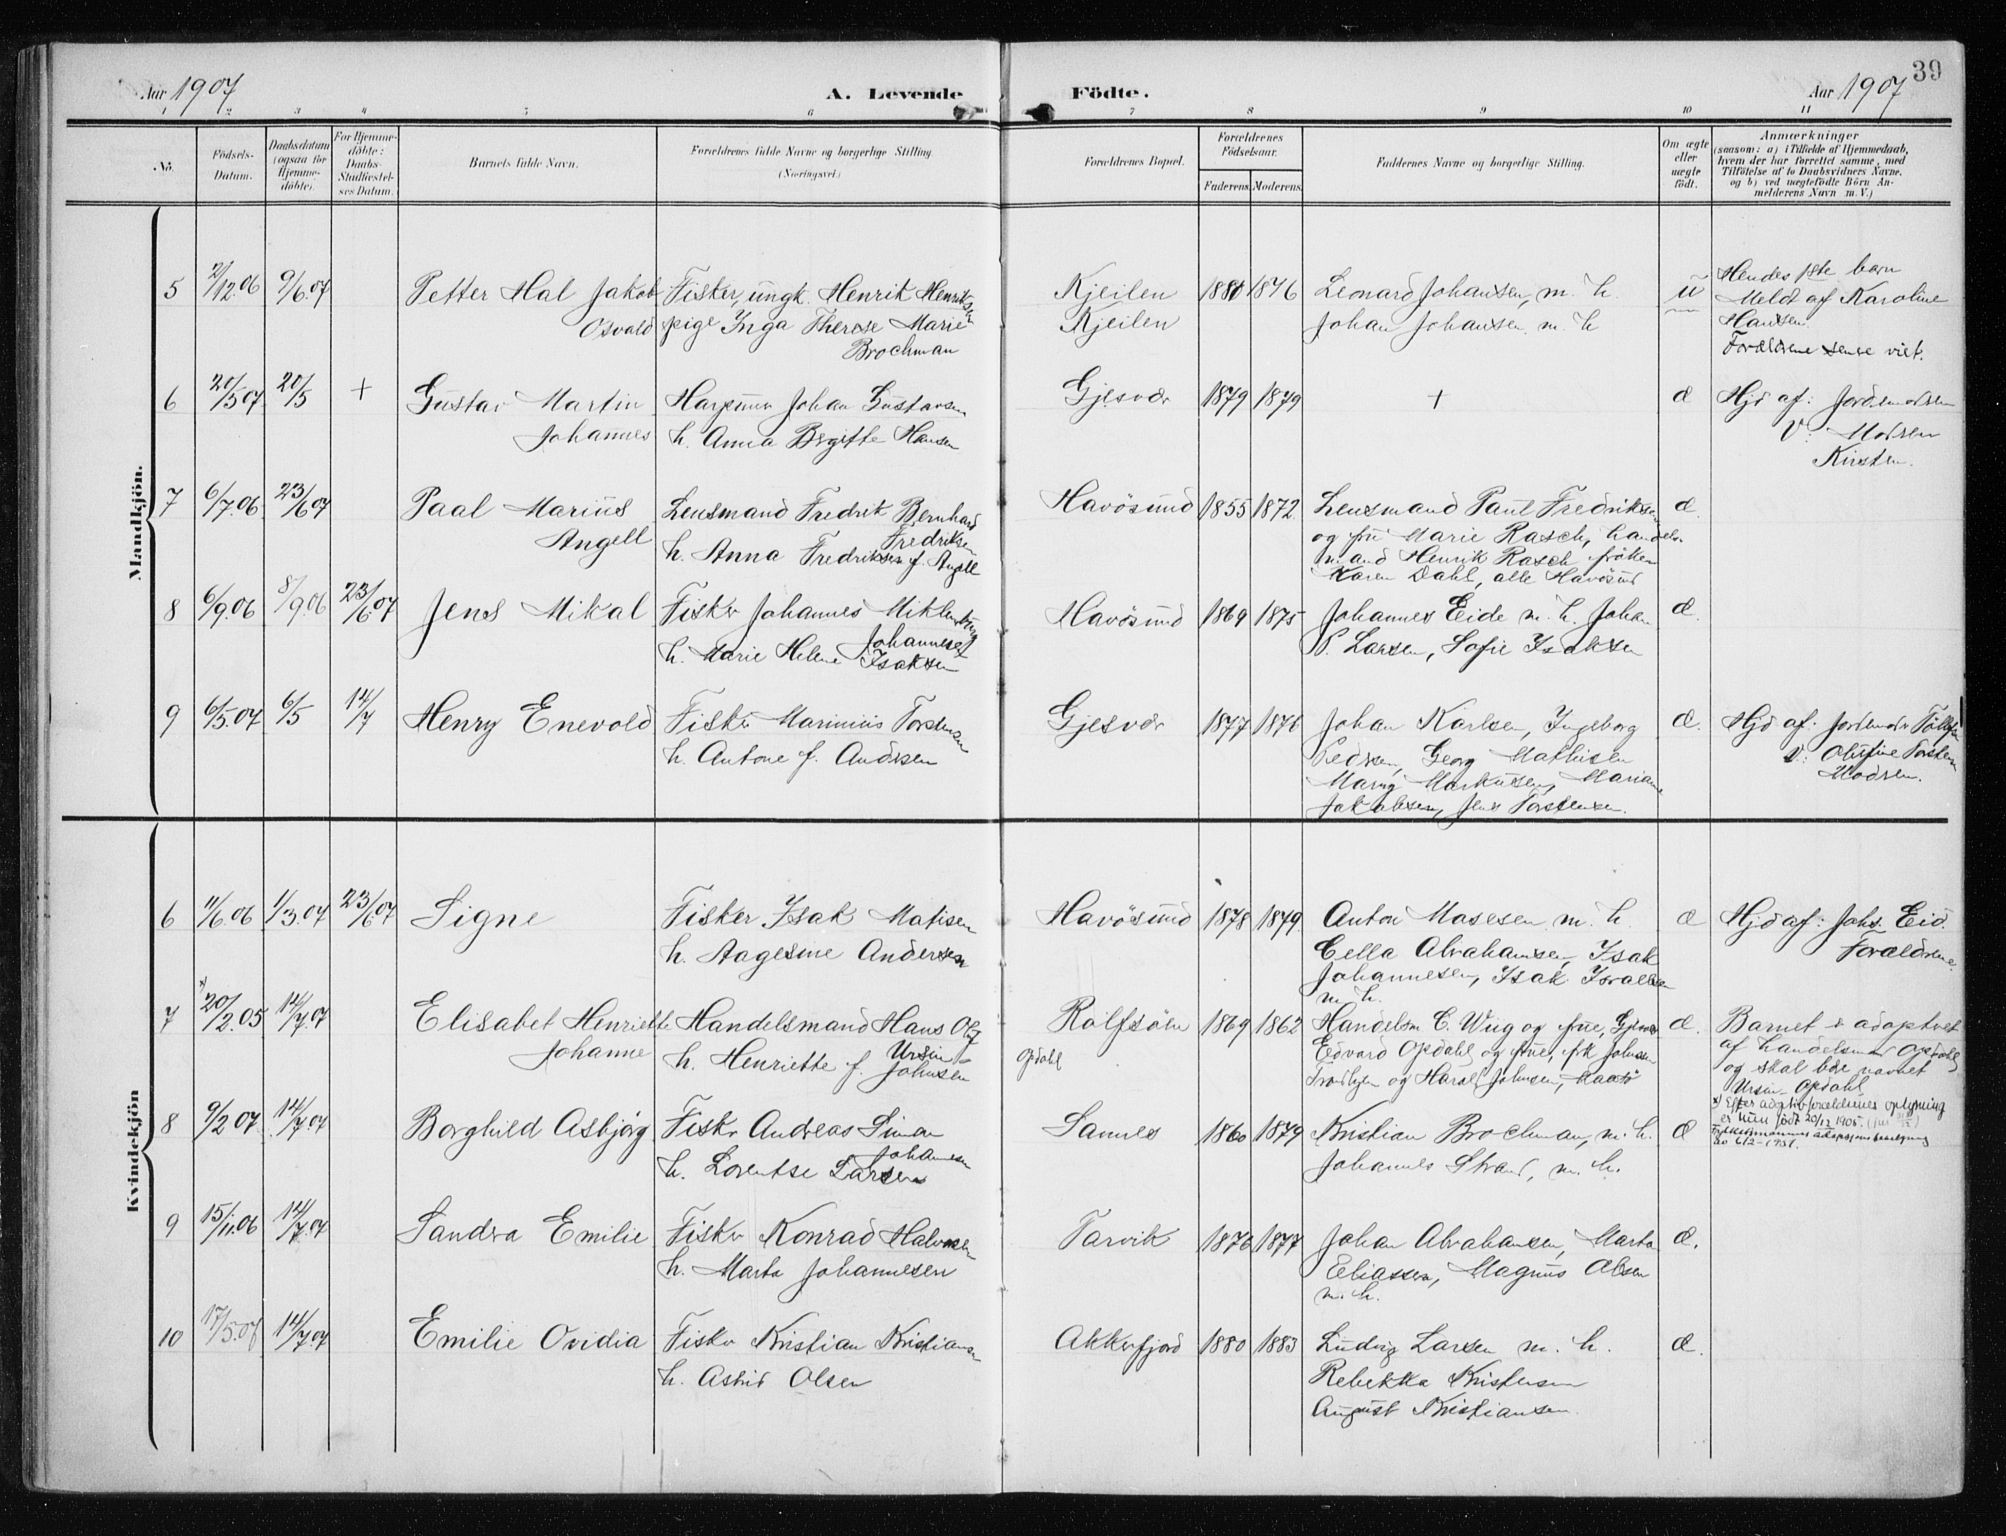 39
Aar 1907 A. Levende Födte. Aar 1907
1 2 3 4 5 6 7 8 9 10 11
No.
Födsels-
Datum.
Daabsdatum
(ogsaa for
Hjemme-
döbte).
For Hjemme-
döbte:
Daabs-
Stadfæstel-
ses Datum.
Barnets fulde Navn.
Forældrenes fulde Navne og borgerlige Stilling
(Næringsvei.)
Forældrenes Bopæl.
Forældrenes
Födselsaar.
Faderens. Moderens.
Faddernes Navne og borgerlige Stilling.
Om ægte
eller
uægte
födt.
Anmærkninger
(saasom: a) i Tilfælde af Hjemmedaab,
hvem der har forrettet samme, med
Tilföielse af to Daabsvidners Navne.
og b) ved uægtefödte Börn An-
melderens Navn m. V.)
Mandkjön.
5 2/12.06 9/6.07 Petter Hal Jakob
Osvald
Fisker, ungk. Henrik Henriksen
pige Inga Therese Marie
Brochman
Kjeilen
Kjeilen
1880 1876
Leonard Johansen, m. h.
Johan Johansen m. h
u
Hendes 1ste barn
Meldt af Karoline
Hansen.
Forældrene senere viet.
6 20/5 07 20/5 + Gustav Martin
Johannes
Johan Gustavsen
h. Anna Birgitte Hansen
Gjesvær 1879 1879 + æ
Hjd af: Jordemodren
V: Modren
Kirsten.
7 6/7.06 23/6 07 Paal Marius
Angell
Lensmand Fredrik Bernhard
Fredriksen
h. Anna Fredriksen f. Angell
Havösund 1855 1872
Lensmand Paul Fredriksen
og fru Marie Rasch, handels-
mand Henrik Rasch, fröken
Karen Dahl, alle Havösund
æ.
8 6/9.06 8/9.06 23/6 07 Jens Mikal
Fisker Johannes Mikkel
Johannesen
h. Marie Helene Isaksen
Havösund 1869 1875
Johannes Eide m. h. Johan
P. Larsen, Sofie Isaksen
æ.
9 6/5.07 6/5 14/7 Henry Enevold
Fisker Marinius Torstensen
h. Antone f. Andersen
Gjesvær 1877 1876
Johan Karlsen, Ingeborg
Pedersen, Georg Mathisen
Markusen, Mariane
Jakobsen, Jens Torstensen.
æ.
Hjd af: Jordemor
V: Torstensen
Modren.
Kvindekjön
6 11/6.06 1/3.07 23/6 07 Signe
Fisker Isak Matisen
h. Aagesine Andersen
Havösund 1878 1879
Anton Masesen m. h.
Cella Abrahamsen, Isak
Johannesen, Isak Israelsen
m. h.
æ
Hjd af: Johs. Eid.
Forældrene.
7 x) 20/12.05 14/7.07 Elisabet Henriette
Johanne
Handelsmand Hans Olaf
Ursin
h. Henriette f. Johnsen
Rolfsöen
Opdahl
1869 1862
Handelsm C. Wiig og frue,
Edvard Opdahl og frue, frk Johnsen
og Harald Johnsen, Maasö
æ.
Barnet er adoptvet
af handelsmand Opdahl
og skal bære navnet
Ursin Opdahl
x) Efter adoptivforældrenes oplysning
er hun födt 20/12 1905.
6/2-1931.
8 9/2 07. 14/7.07 Borghild Asbjörg
Fisker Andreas Simon
Johannesen
h. Lorentse Larsen
Sannes 1860 1879
Kristian Brochman, m. h.
Johannes Strand, m. h.
æ
9 15/11.06 14/7.07 Sandra Emilie
Fisker Konrad Halvorsen
h. Marta Johannesen
Tarvik 1876 1877
Johan Abrahamsen, Marta
Eliassen, Magnus Olsen
m. h.
æ.
10 17/5.07 14/7.07 Emilie Ovidia
Fisker Kristian Kristiansen
h. Astrid Olsen
Akkarfjord 1880 1883
Ludvig Larsen m. h.
Rebekka Kristensen
August Kristiansen
æ.